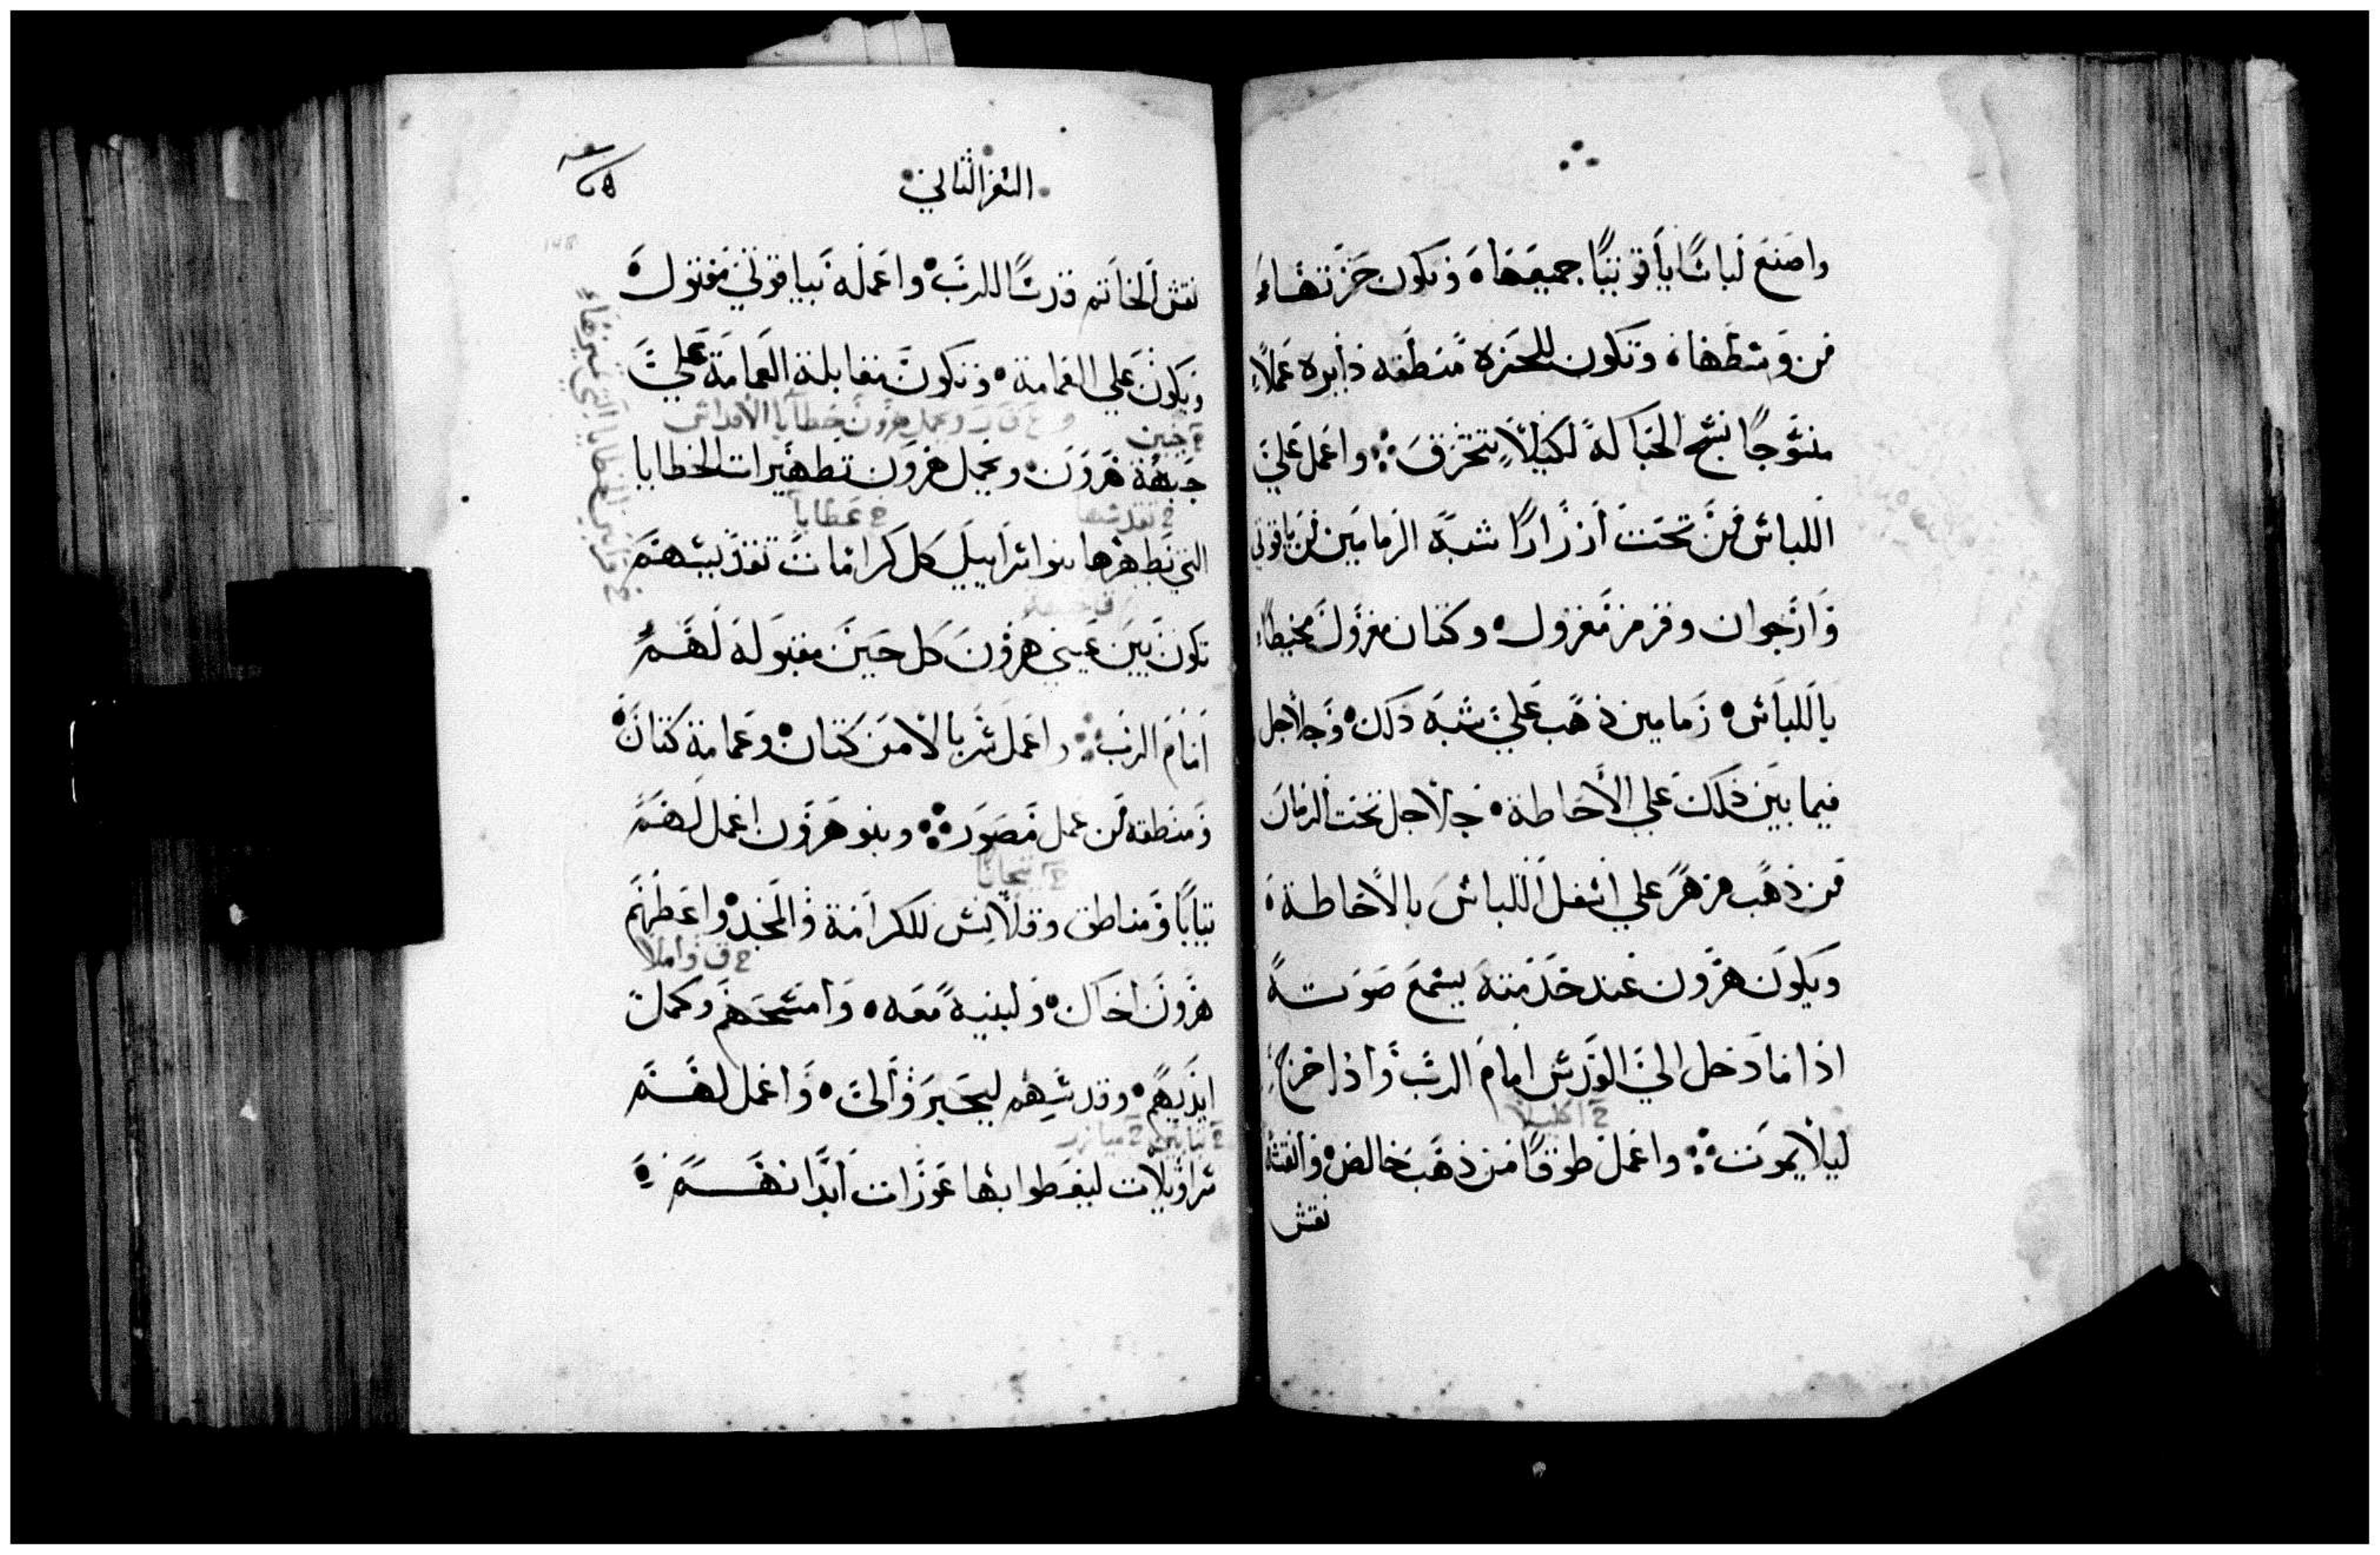 واصنع لباسًا ياقوتيًا جميعها وتكون حزتها
من وسطها وتكون للحزه منطقه دايره عملاً
منسوجًا نسج الحباكة لكيلا يتخرق واعمل علي
اللباس من تحت ازرارًا شبه الرمامين من ياقوتي
وارجوان وقرمز مغزول وكتان مغزول مخيطا
باللباس رمامين ذهب علي شبه ذلك وجلاجل
فيما بين ذلك علي الاحاطة جلاجل تحت الرمان
من ذهب مزهر علي اسفل اللباس بالاحاطة
ويكون هرون عند خدمته يسمع صوته
اذا ما دخل الي القدس امام الرب واذا خرج
ح اكليلاً
ليلا يموت واعمل طوقًا من ذهب خالص وانقشه
نقش
السفر الثاني
نقش الخاتم قدسًا للرب واعمله بياقوتي مفتول
ويكون علي العمامة وتكون مقابلة العمامة علي
ح جبين
جبهة هرون ويحمل هرون تطهيرات الخطايا
ح تقدسها ح عطايا
التي يطهرها بنوا اسراييل كل كرامات تقديسهم
تكون بين عيني هرون كل حين مقبولة لهم
امام الرب واعمل سربالا من كتان وعمامة كتان
ومنطقه من عمل مصور وبنو هرون اعمل لهم
ح تيجانا
ثيابًا ومناطق وقلانس للكرامة والمجد واعطهم
ح ق واملا
هرون اخاك ولبنيه معه وامسحهم وكمل
ايديهم وقدسهم ليحبروا لي واعمل لهم
ح ميازر
سراويلات ليغطوا بها عورات ابدانهم